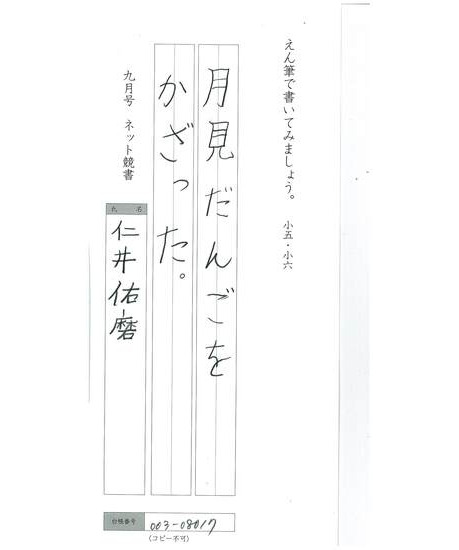 えん筆で書いてみましょう。 小五・小六
月見だんごを
かざった。
九月号 ネット競書
氏 名
仁井佑磨
台帳番号 003-08017
(コピー不可)